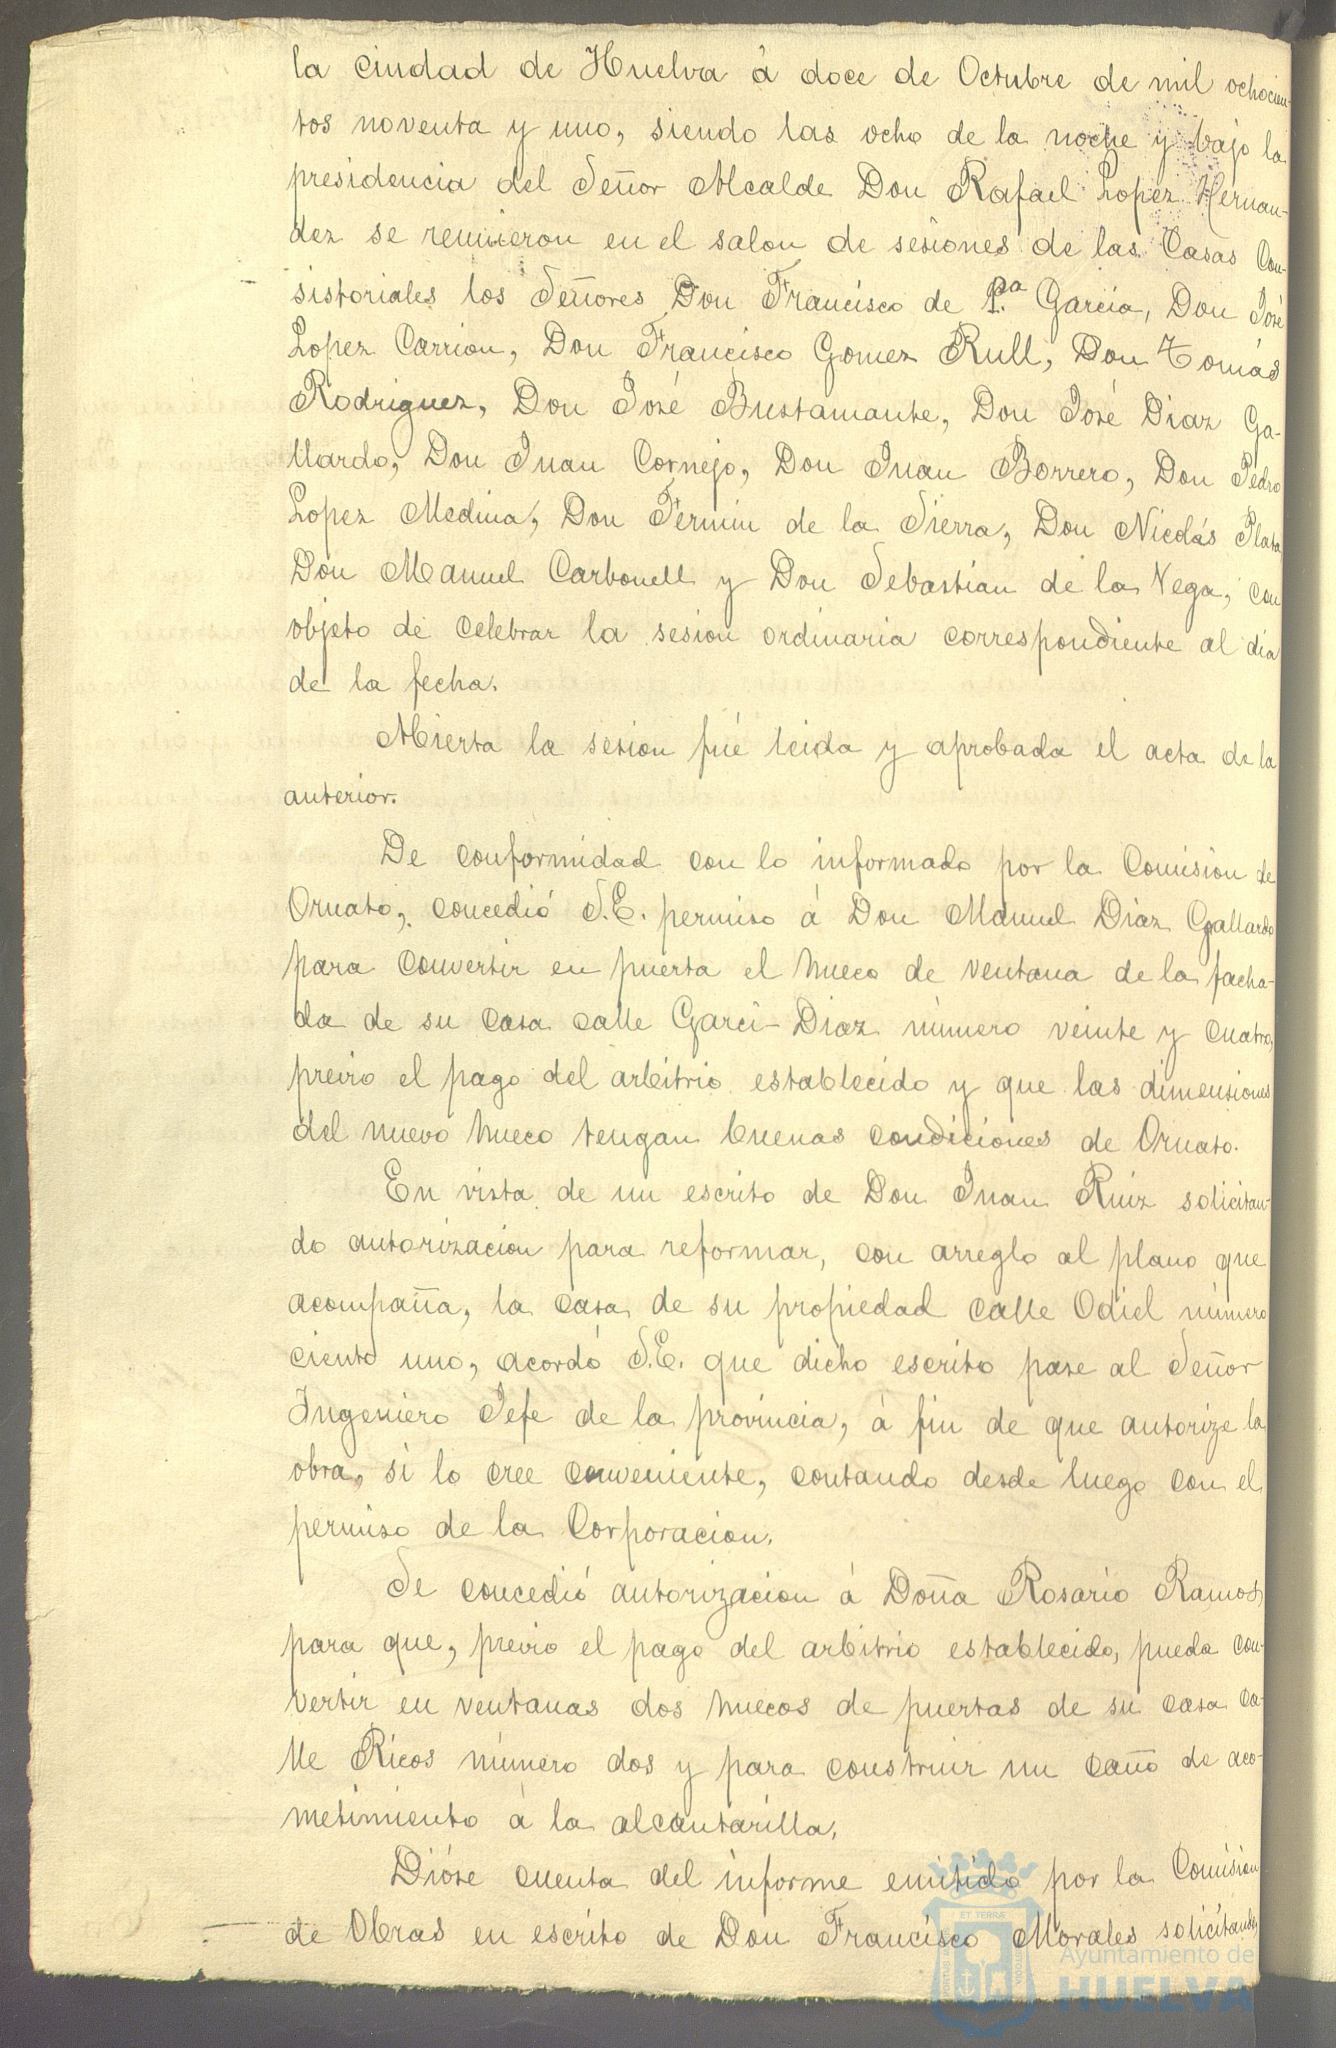 la ciudad de Huelva á doce de Octubre de mil ochocien-
tos noventa y uno, siendo las ocho de la noche y bajo la
presidencia del Señor Alcalde Don Rafael Lopez Hernan-
dez se reunieron en el salon de sesiones de las Casas Con-
sistoriales los Señores Don Francisco de P.ª Garcia, Don José
Lopez Carrion, Don Francisco Gomez Rull, Don Tomás
Rodriguez, Don José Bustamante, Don José Diaz Ga-
llardo, Don Juan Cornejo, Don Juan Borrero, Don Pedro
Lopez Medina, Don Fermin de la Sierra, Don Nicolás Plata
Don Manuel Carbonell y Don Sebastian de la Vega, con
objeto de celebrar la sesion ordinaria correspondiente al dia
de la fecha.
Abierta la sesion fué leida y aprobada el acta de la
anterior.
De conformidad con lo informado por la Comision de
Ornato, concedió S.E. permiso á Don Manuel Diaz Gallardo
para convertir en puerta el hueco de ventana de la facha-
da de su casa calle Garci-Diaz número veinte y cuatro,
previo el pago del arbitrio establecido y que las dimensiones
del nuevo hueco tengan buenas condiciones de Ornato.
En vista de un escrito de Don Juan Ruiz solicitan-
do autorizacion para reformar, con arreglo al plano que
acompaña, la casa de su propiedad calle Odiel número
ciento uno, acordó S.E. que dicho escrito pase al Señor
Ingeniero Jefe de la provincia, á fin de que autorize la
obra, si lo cree conveniente, contando desde luego con el
permiso de la Corporacion.
Se concedió autorizacion á Doña Rosario Ramos,
para que, previo el pago del arbitrio establecido, pueda con-
vertir en ventanas dos huecos de puertas de su casa ca-
lle Ricos número dos y para construir un caño de aco-
metimiento á la alcantarilla.
Dióse cuenta del informe emitido por la Comision
de Obras en escrito de Don Francisco Morales solicitando,
ET TERRÆ
Ayuntamiento de
HUELVA